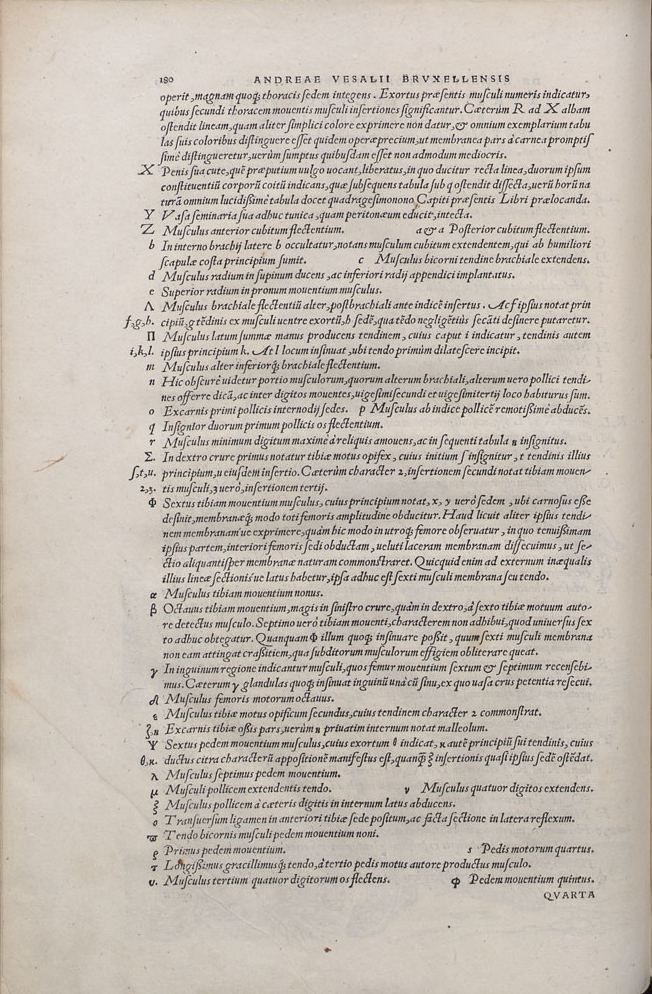 180 ANDREAE VESALII BRVXELLENSIS
operit, magnam quoq; thoracis sedem integens. Exortus præsentis musculi numeris indicatur,
quibus secundi thoracem mouentis musculi insertiones significantur. Cæterùm R ad X albam
ostendit lineam, quam aliter simplici colore exprimere non datur, & omnium exemplarium tabu
las suis coloribus distinguere esset quidem operæprecium, ut membranea pars à carnea promptis
simè distingueretur, uerùm sumptus quibusdam esset non admodum mediocris.
X Penis sua cute, quē præputium uulgo uocant, liberatus, in quo ducitur recta linea, duorum ipsum
constituentiū corporū coitū indicans, quæ subsequens tabula sub q ostendit dissecta, uerū horū na
turā omnium lucidissimè tabula docet quadragesimonono Capiti præsentis Libri prælocanda.
Y Vasa seminaria sua adhuc tunica, quam peritonæum educit, intecta.
Z Musculus anterior cubitum flectentium. a & a Posterior cubitum flectentium.
b In interno brachij latere b occultatur, notans musculum cubitum extendentem, qui ab humiliori
scapulæ costa principium sumit. c Musculi bicorni tendine brachiale extendens.
d Musculus radium in supinum ducens, ac inferiori radij appendici implantatus.
e Superior radium in pronum mouentium musculus.
Λ Musculus brachiale flectentiū alter, postbrachiali ante indicē insertus. Ac f ipsius notat prin
f, g, h. cipiū, g tēdinis ex musculi uentre exortū, h sedē, qua tēdo negligētiùs secāti desinere putaretur.
Π Musculus latum summæ manus producens tendinem, cuius caput i indicatur, tendinis autem
i, k, l. ipsius principium k. At l locum insinuat, ubi tendo primùm dilatescere incipit.
m Musculus alter inferiorq; brachiale flectentium.
n Hic obscurè uidetur portio musculorum, quorum alterum brachiali, alterum uero pollici tendi-
nes offerre dicā, ac inter digitos mouentes, uigesimisecundi et uigesimitertij loco habiturus sum.
o Excarnis primi pollicis internodij sedes. p Musculus ab indice pollicē remotissimè abducēs.
q Insignior duorum primum pollicis os flectentium.
r Musculus minimum digitum maximè à reliquis amouens, ac in sequenti tabula n insignitus.
Σ. In dextro crure primus notatur tibiæ motus opifex, cuius initium s insignitur, t tendinis illius
s, t, u. principium, u eiusdem insertio. Cæterùm character 2, insertionem secundi notat tibiam mouen-
2, 3. tis musculi, 3 uerò, insertionem tertij.
Φ Sextus tibiam mouentium musculus, cuius principium notat, x, y uerò sedem, ubi carnosus esse
desinit, membranæq; modo toti femoris amplitudine obducitur. Haud licuit aliter ipsius tendi-
nem membranam'ue exprimere, quàm hic modo in utroq; femore obseruatur, in quo tenuissimam
ipsius partem, interiori femoris sedi obductam, ueluti laceram membranam dissecuimus, ut se-
ctio aliquantisper membranæ naturam commonstraret. Quicquid enim ad externum inæqualis
illius lineæ sectionis'ue latus habetur, ipsa adhuc est sexti musculi membrana seu tendo.
α Musculus tibiam mouentium nonus.
β Octauus tibiam mouentium, magis in sinistro crure, quàm in dextro, à sexto tibiæ motuum auto-
re detectus musculo. Septimo uerò tibiam mouenti, characterem non adhibui, quod uniuersus sex
to adhuc obtegatur. Quanquam Φ illum quoq; insinuare possit, quum sexti musculi membrana
non eam attingat crassitiem, qua subditorum musculorum effigiem obliterare queat.
γ In inguinum regione indicantur musculi, quos femur mouentium sextum & septimum recensebi-
mus. Cæterum γ glandulas quoq; insinuat inguinū unà cū sinu, ex quo uasa crus petentia resecui.
δ Musculus femoris motorum octauus.
ε Musculus tibiæ motus opificum secundus, cuius tendinem character 2 commonstrat.
ζ, η Excarnis tibiæ ossis pars, uerùm η priuatim internum notat malleolum.
Ψ Sextus pedem mouentium musculus, cuius exortum θ indicat, κ autē principiū sui tendinis, cuius
θ, κ. ductus citra characterū appositionē manifestus est, quanq; ξ insertionis quasi ipsius sedē ostēdat.
λ Musculus septimus pedem mouentium.
μ Musculi pollicem extendentis tendo. ν Musculus quatuor digitos extendens.
ξ Musculus pollicem à cæteris digitis in internum latus abducens.
ο Transuersum ligamen in anteriori tibiæ sede positum, ac facta sectione in latera reflexum.
ϖ Tendo bicornis musculi pedem mouentium noni.
ρ Primus pedem mouentium. s Pedis motorum quartus.
τ Longissimus gracillimusq; tendo, à tertio pedis motus autore productus musculo.
υ. Musculus tertium quatuor digitorum os flectens. φ Pedem mouentium quintus.
QVARTA